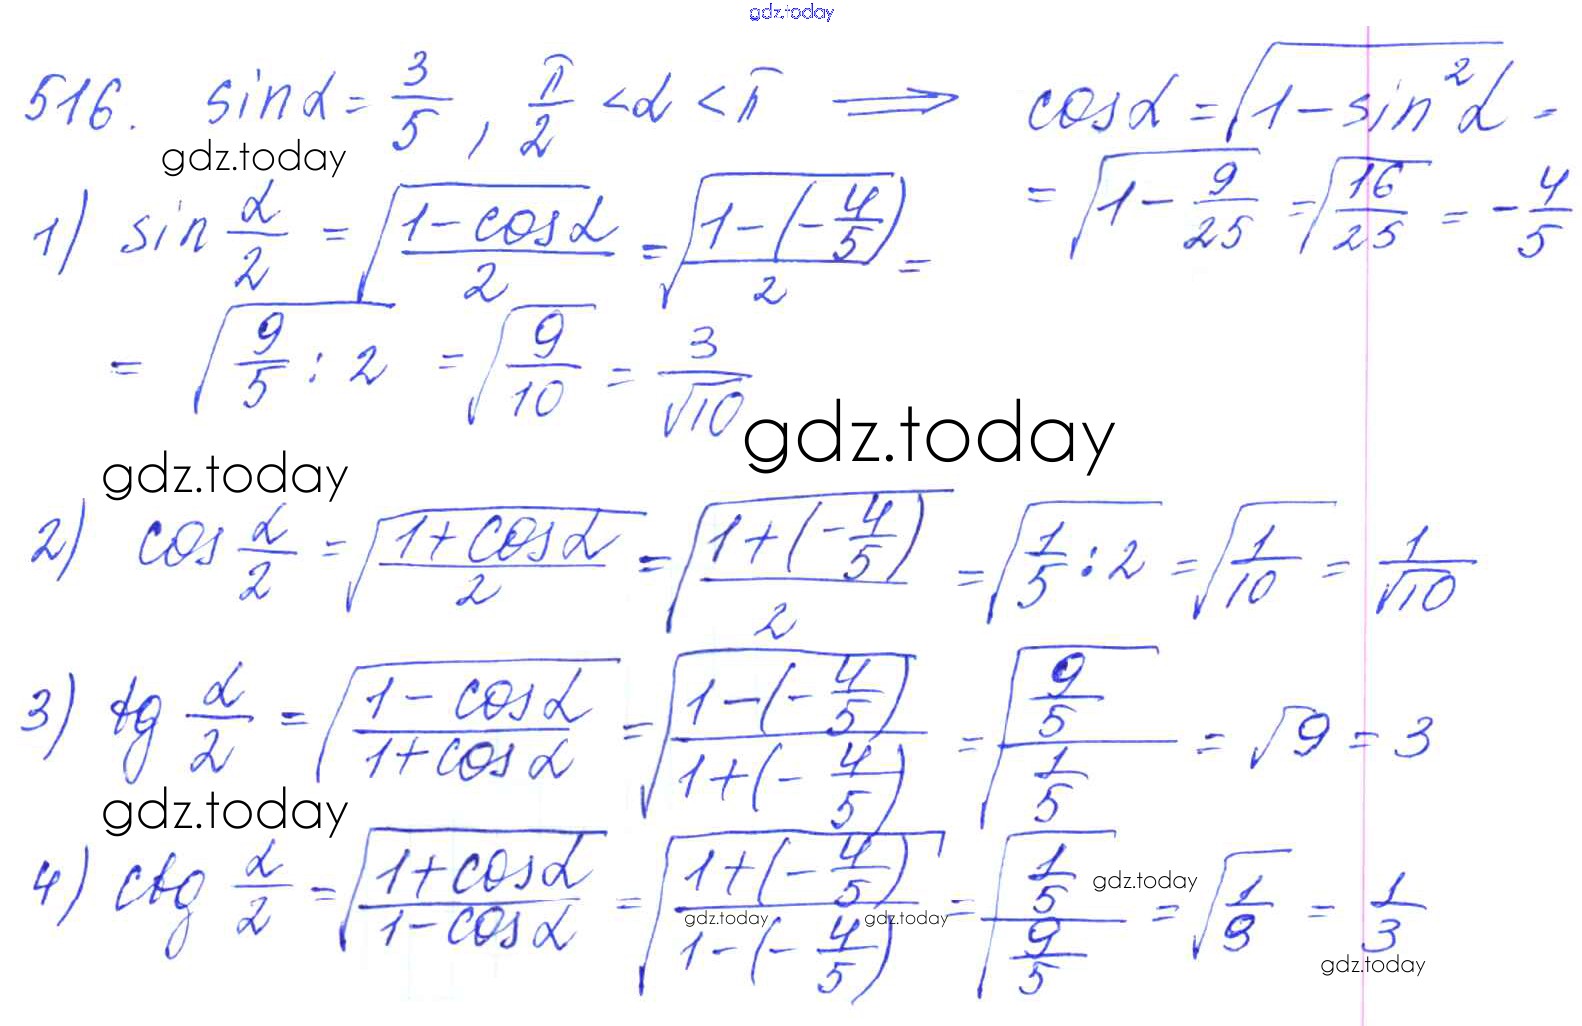 gdz.today
516. sinα = 3/5, π/2 < α < π ⟹ cosα = √(1 - sin²α) =
= √(1 - 9/25) = √(16/25) = -4/5
gdz.today
1) sin α/2 = √((1 - cosα)/2) = √((1 - (-4/5))/2) =
= √(9/5 : 2) = √(9/10) = 3/√10
gdz.today
gdz.today
2) cos α/2 = √((1 + cosα)/2) = √((1 + (-4/5))/2) = √(1/5 : 2) = √(1/10) = 1/√10
3) tg α/2 = √((1 - cosα)/(1 + cosα)) = √((1 - (-4/5))/(1 + (-4/5))) = √((9/5)/(1/5)) = √9 = 3
gdz.today
4) ctg α/2 = √((1 + cosα)/(1 - cosα)) = √((1 + (-4/5))/(1 - (-4/5))) = √((1/5)/(9/5)) = √(1/9) = 1/3
gdz.today
gdz.today
gdz.today
gdz.today